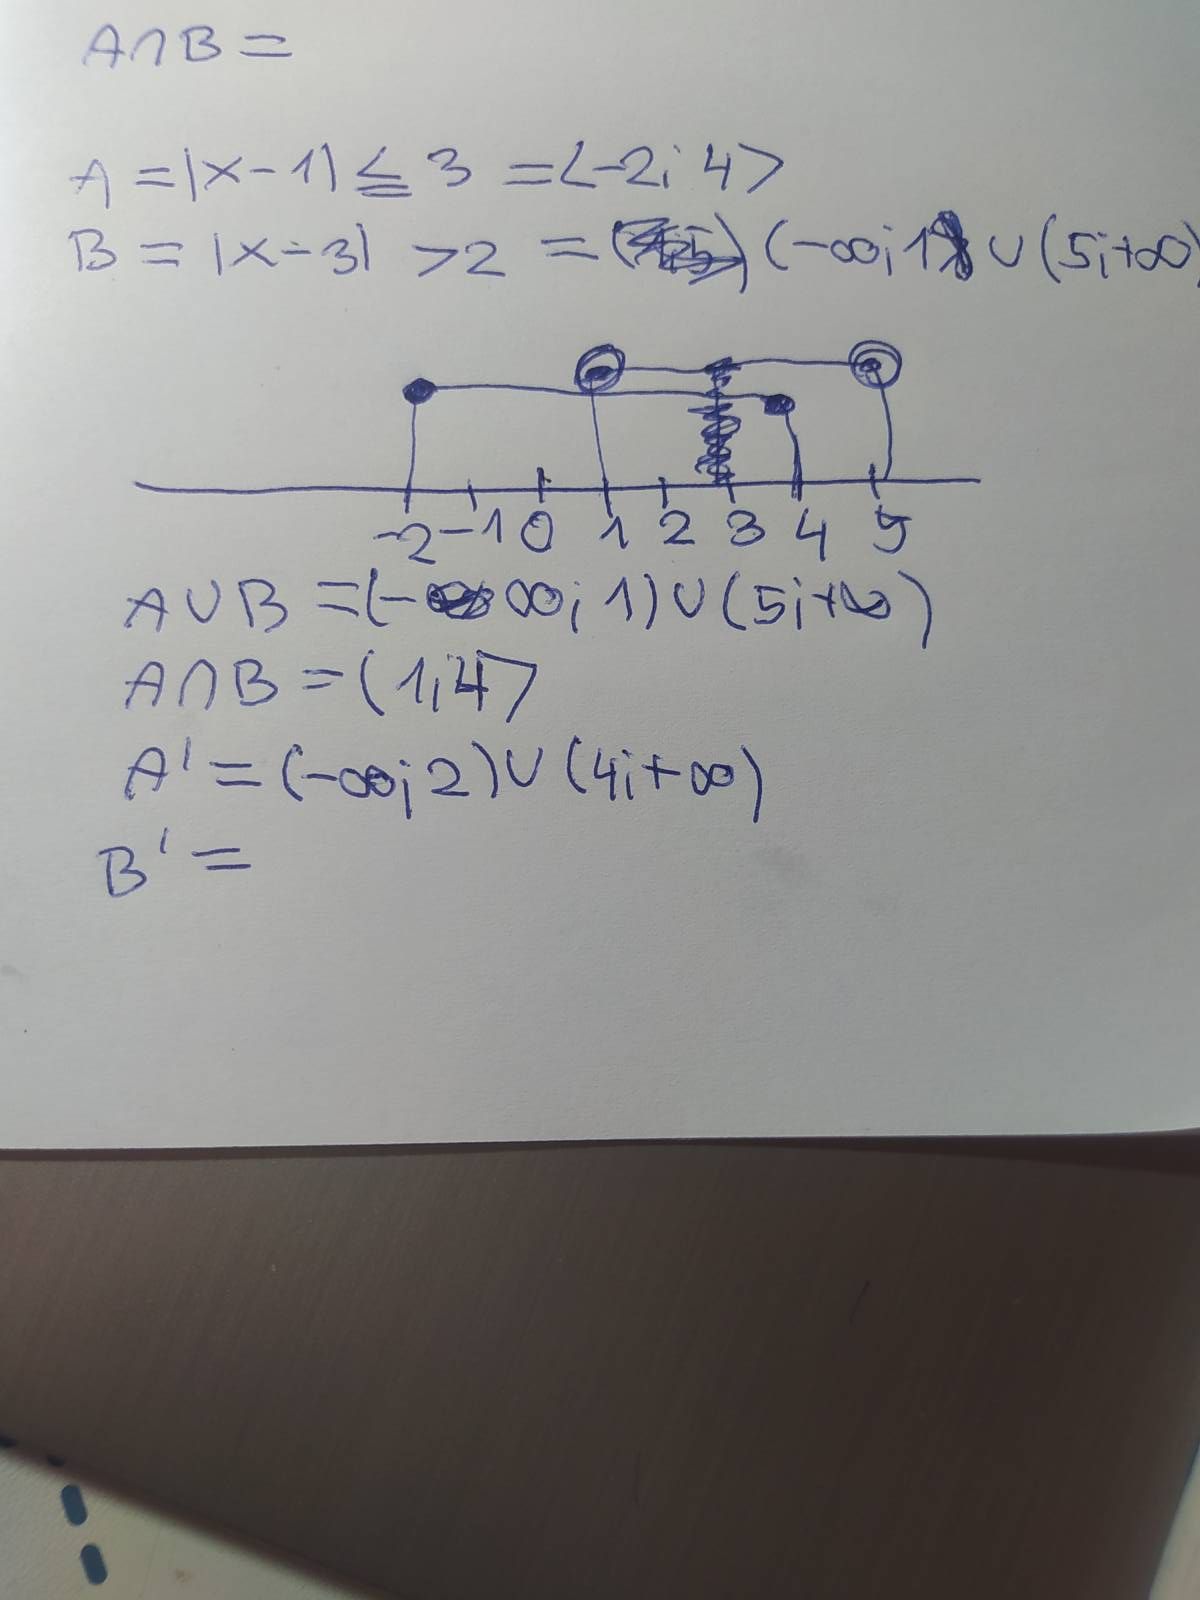 A∩B =
A = |x-1| ≤ 3 = <-2; 4>
B = |x-3| >2 = (-∞; 1) ∪ (5; +∞)
-2 -1 0 1 2 3 4 5
A∪B = (-∞; 1) ∪ (5; +∞)
A∩B = (1; 4>
A' = (-∞; 2) ∪ (4; +∞)
B' =